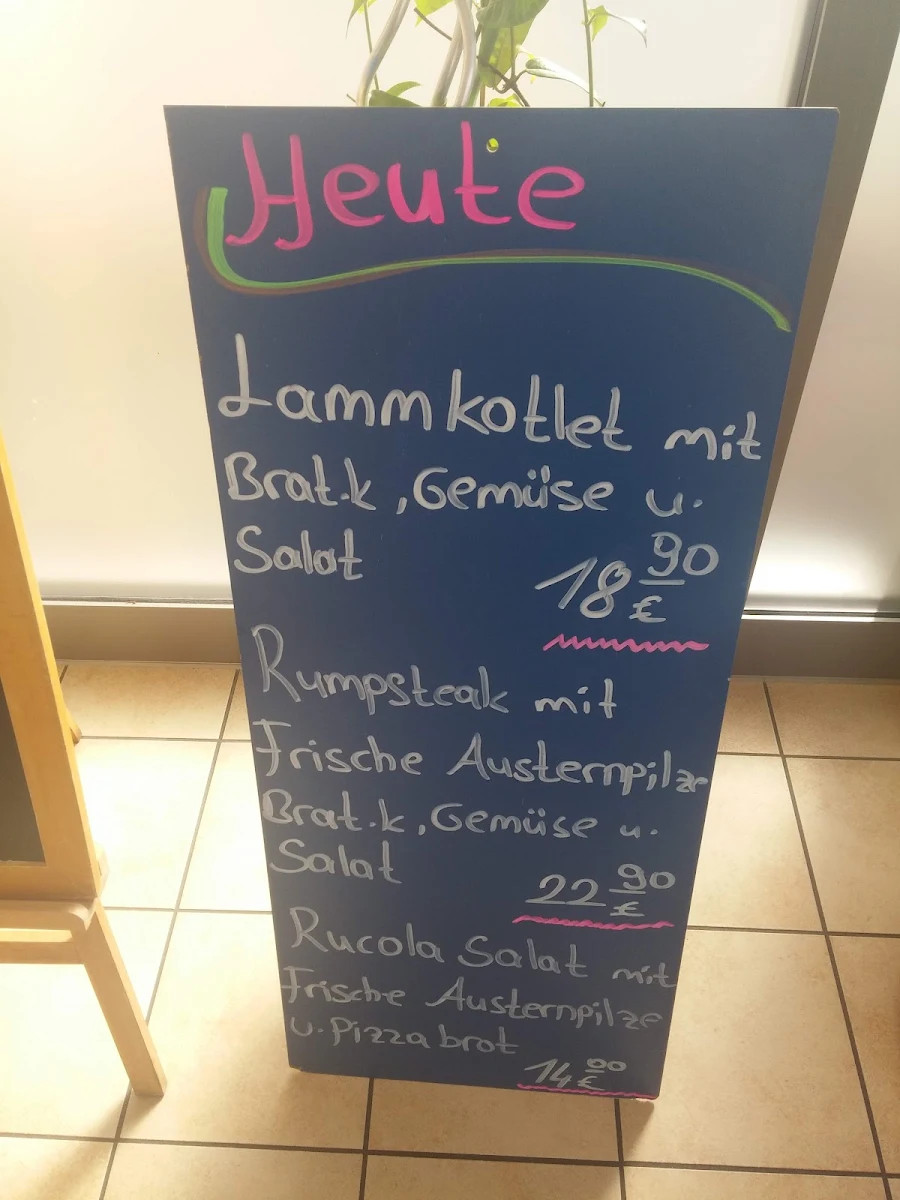 Heute
Lammkotlet mit
Brat.k, Gemüse u.
Salat
18 90 €
Rumpsteak mit
Frische Austernpilze
Brat.k, Gemüse u.
Salat
22 90 €
Rucola Salat mit
Frische Austernpilze
u. Pizzabrot
14 00 €